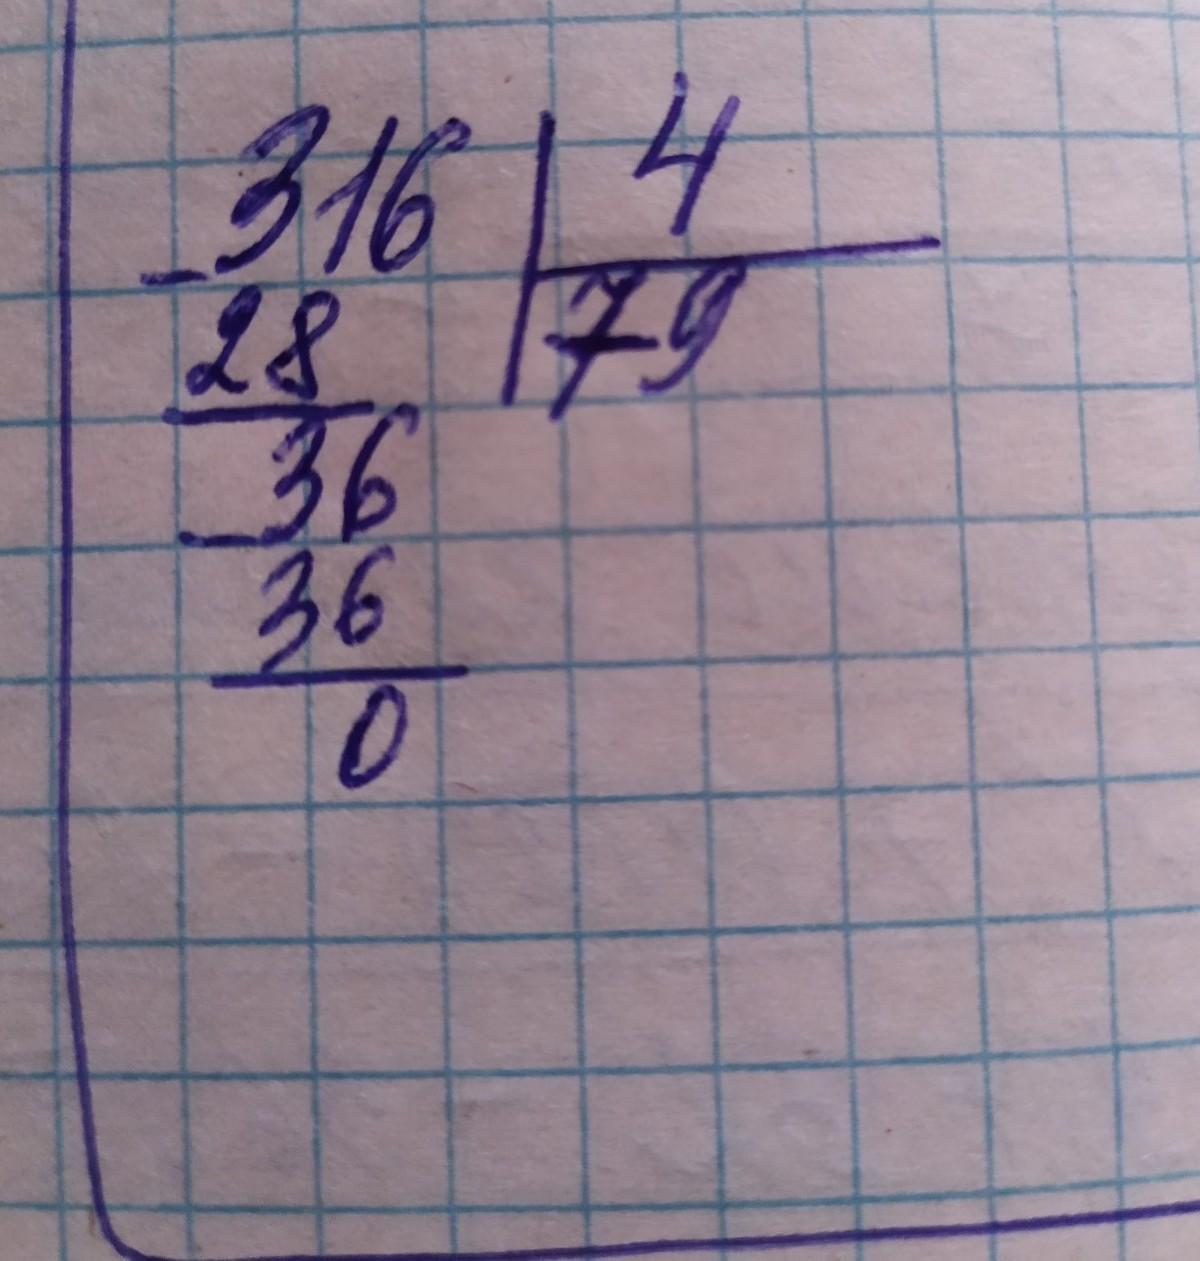 316 4
28 79
36
36
0